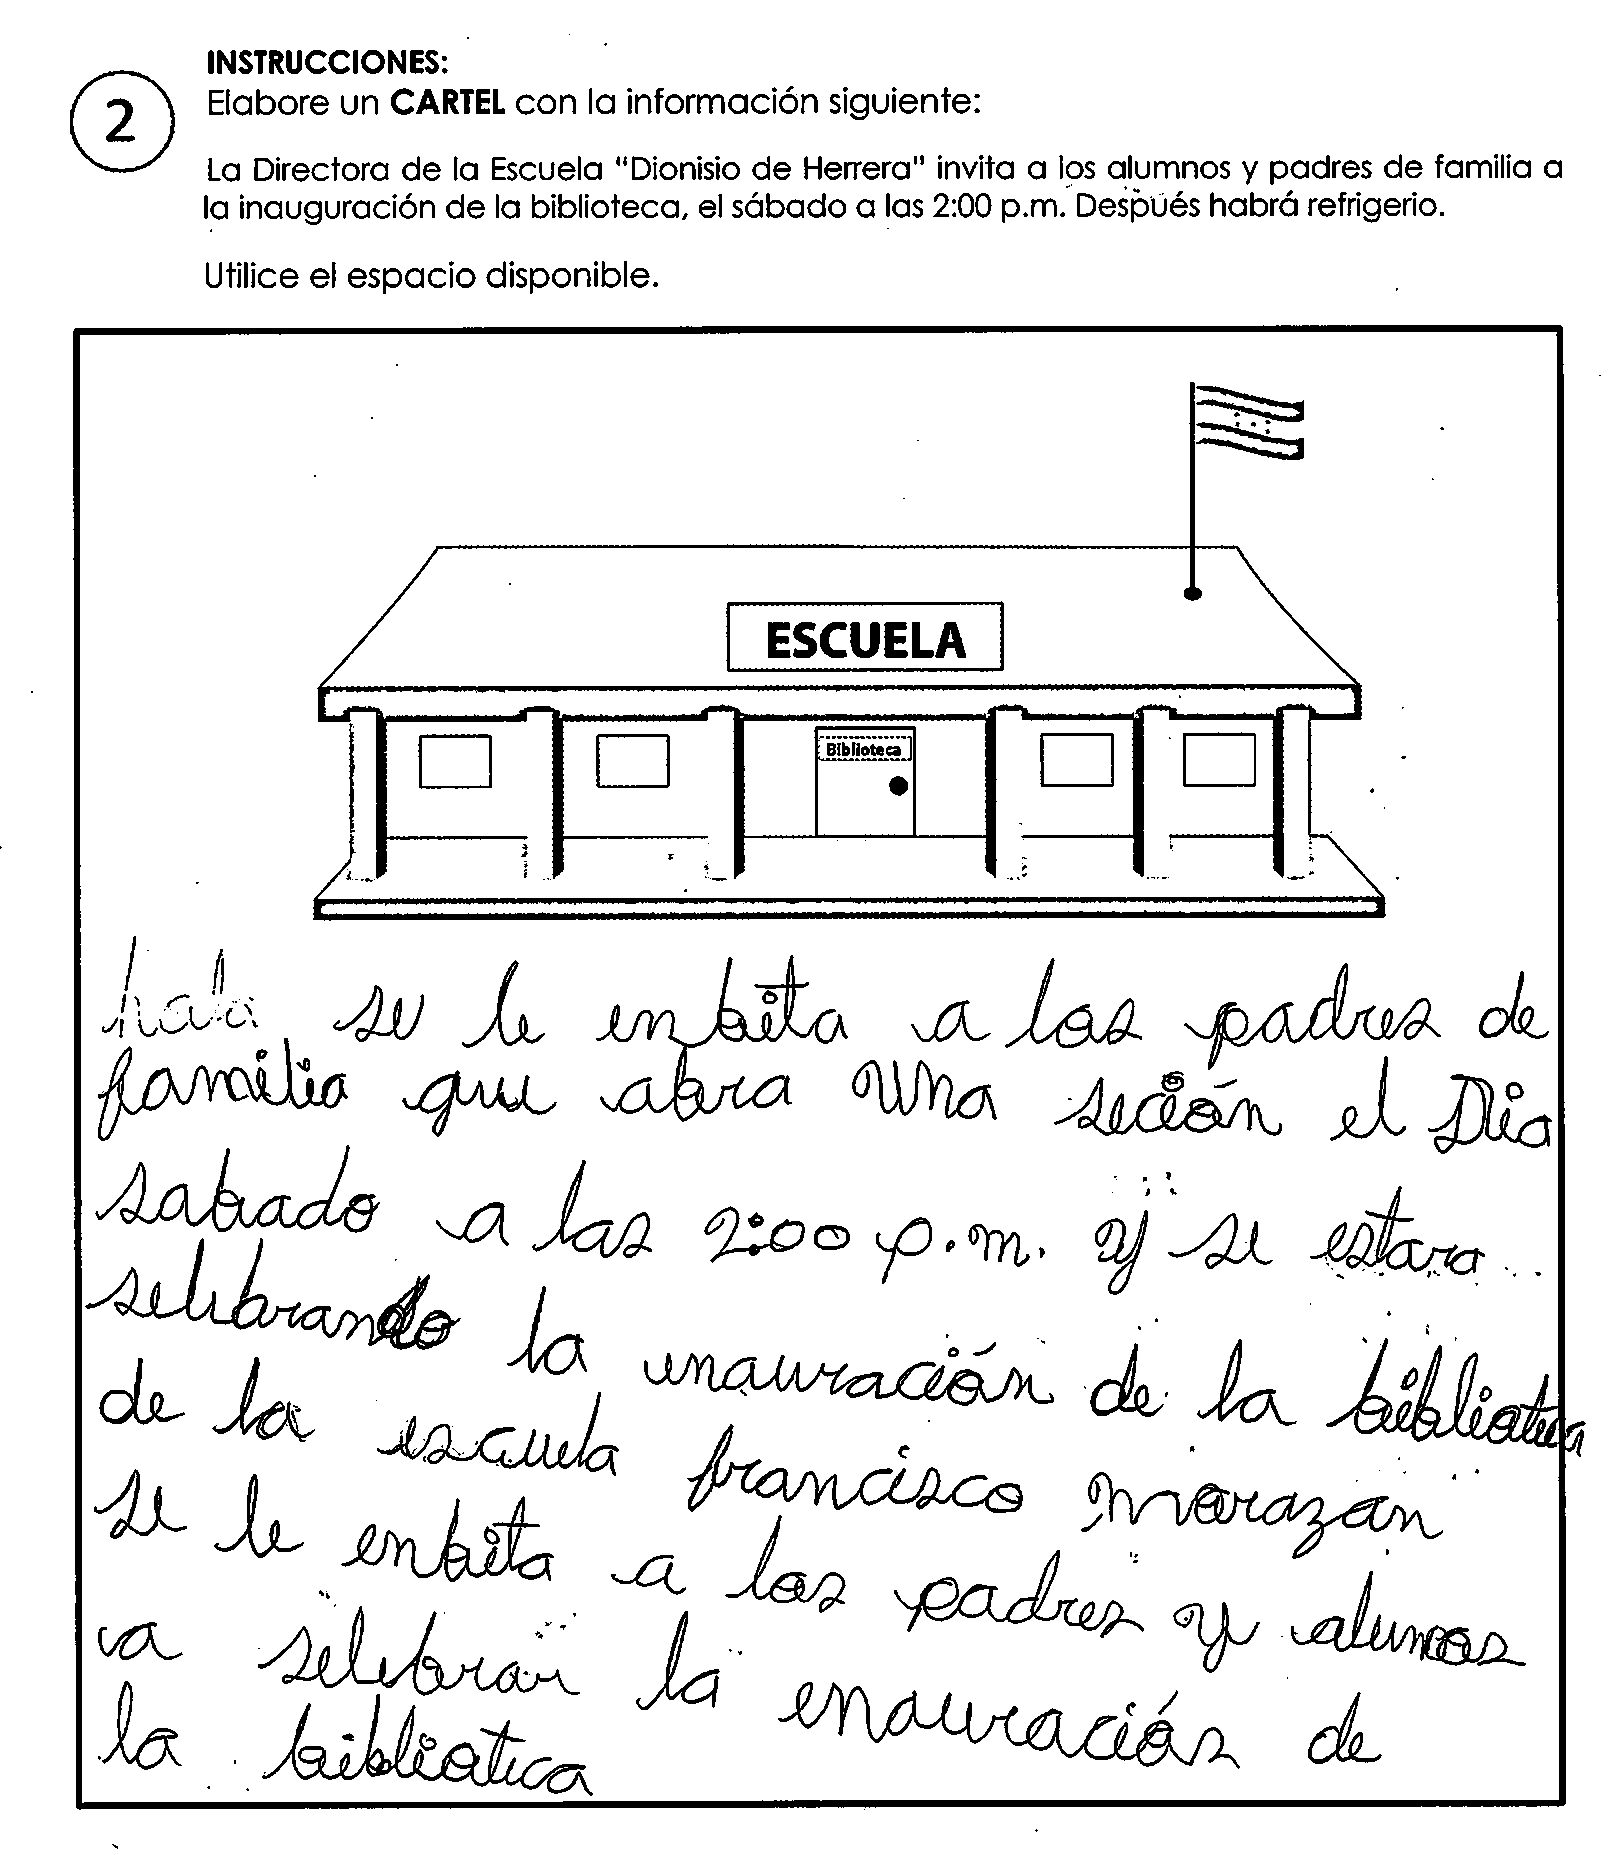 INSTRUCCIONES:
2
Elabore un CARTEL con la información siguiente:
La Directora de la Escuela "Dionisio de Herrera" invita a los alumnos y padres de familia a
la inauguración de la biblioteca, el sábado a las 2:00 p.m. Después habrá refrigerio.
Utilice el espacio disponible.
ESCUELA
Biblioteca
hala se le enbita a los padres de
familia que abra una seción el Dia
sabado a las 2:00 p.m. y se estara
selebrando la inauración de la biblioteca
de la escuela francisco morazan
se le enbita a los padres y alumos
va selebrar la enauración de
la biblioteca